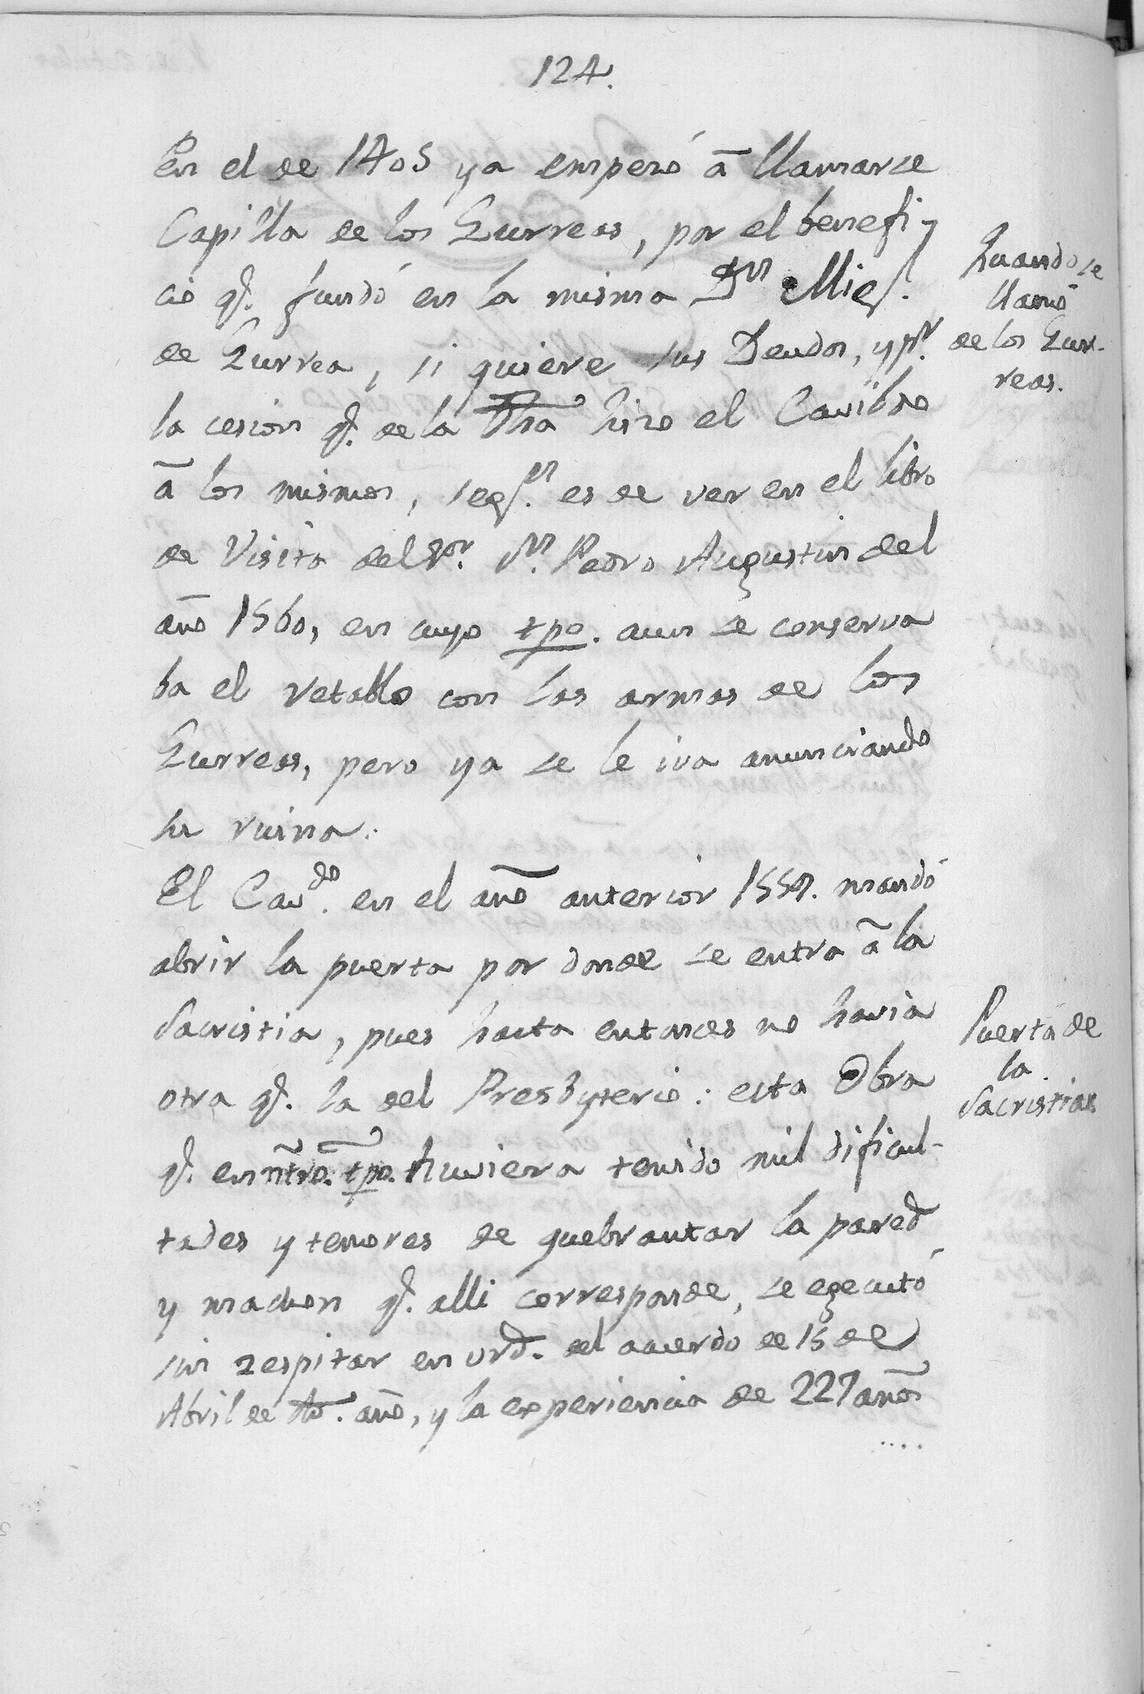 124.
En el de 1405 ya empezó à llamarse
Capilla de los Gurreas, por el benefi-
cio q.e fundó en la misma Dn Migl.
de Gurrea, si quiere sus Deudos, y pr.
la cesion q.e de la dha hizo el Cavildo
à los mismos, segn. es de ver en el libro
de Visita del Sor. Dn. Pedro Augustin del
año 1560, en cuyo tpo. aun se conserva
ba el retablo con las armas de los
Gurreas, pero ya se le iva anunciando
su ruina.
El Cavdo. en el año anterior 1559. mandó
abrir la puerta por donde se entra à la
Sacristia, pues hasta entonces no havia
otra q.e la del Presbyterio: esta Obra
q.e en ntro. tpo. huviera tenido mil dificul-
tades y temores de quebrantar la pared
y machon q.e alli corresponde, se egecutó
sin respitar en vrd. del acuerdo de 15 de
Abril de dho. año, y la experiencia de 227 años
....
Quando se
llamó
de los Gur-
reas.
Puerta de
la
Sacristia